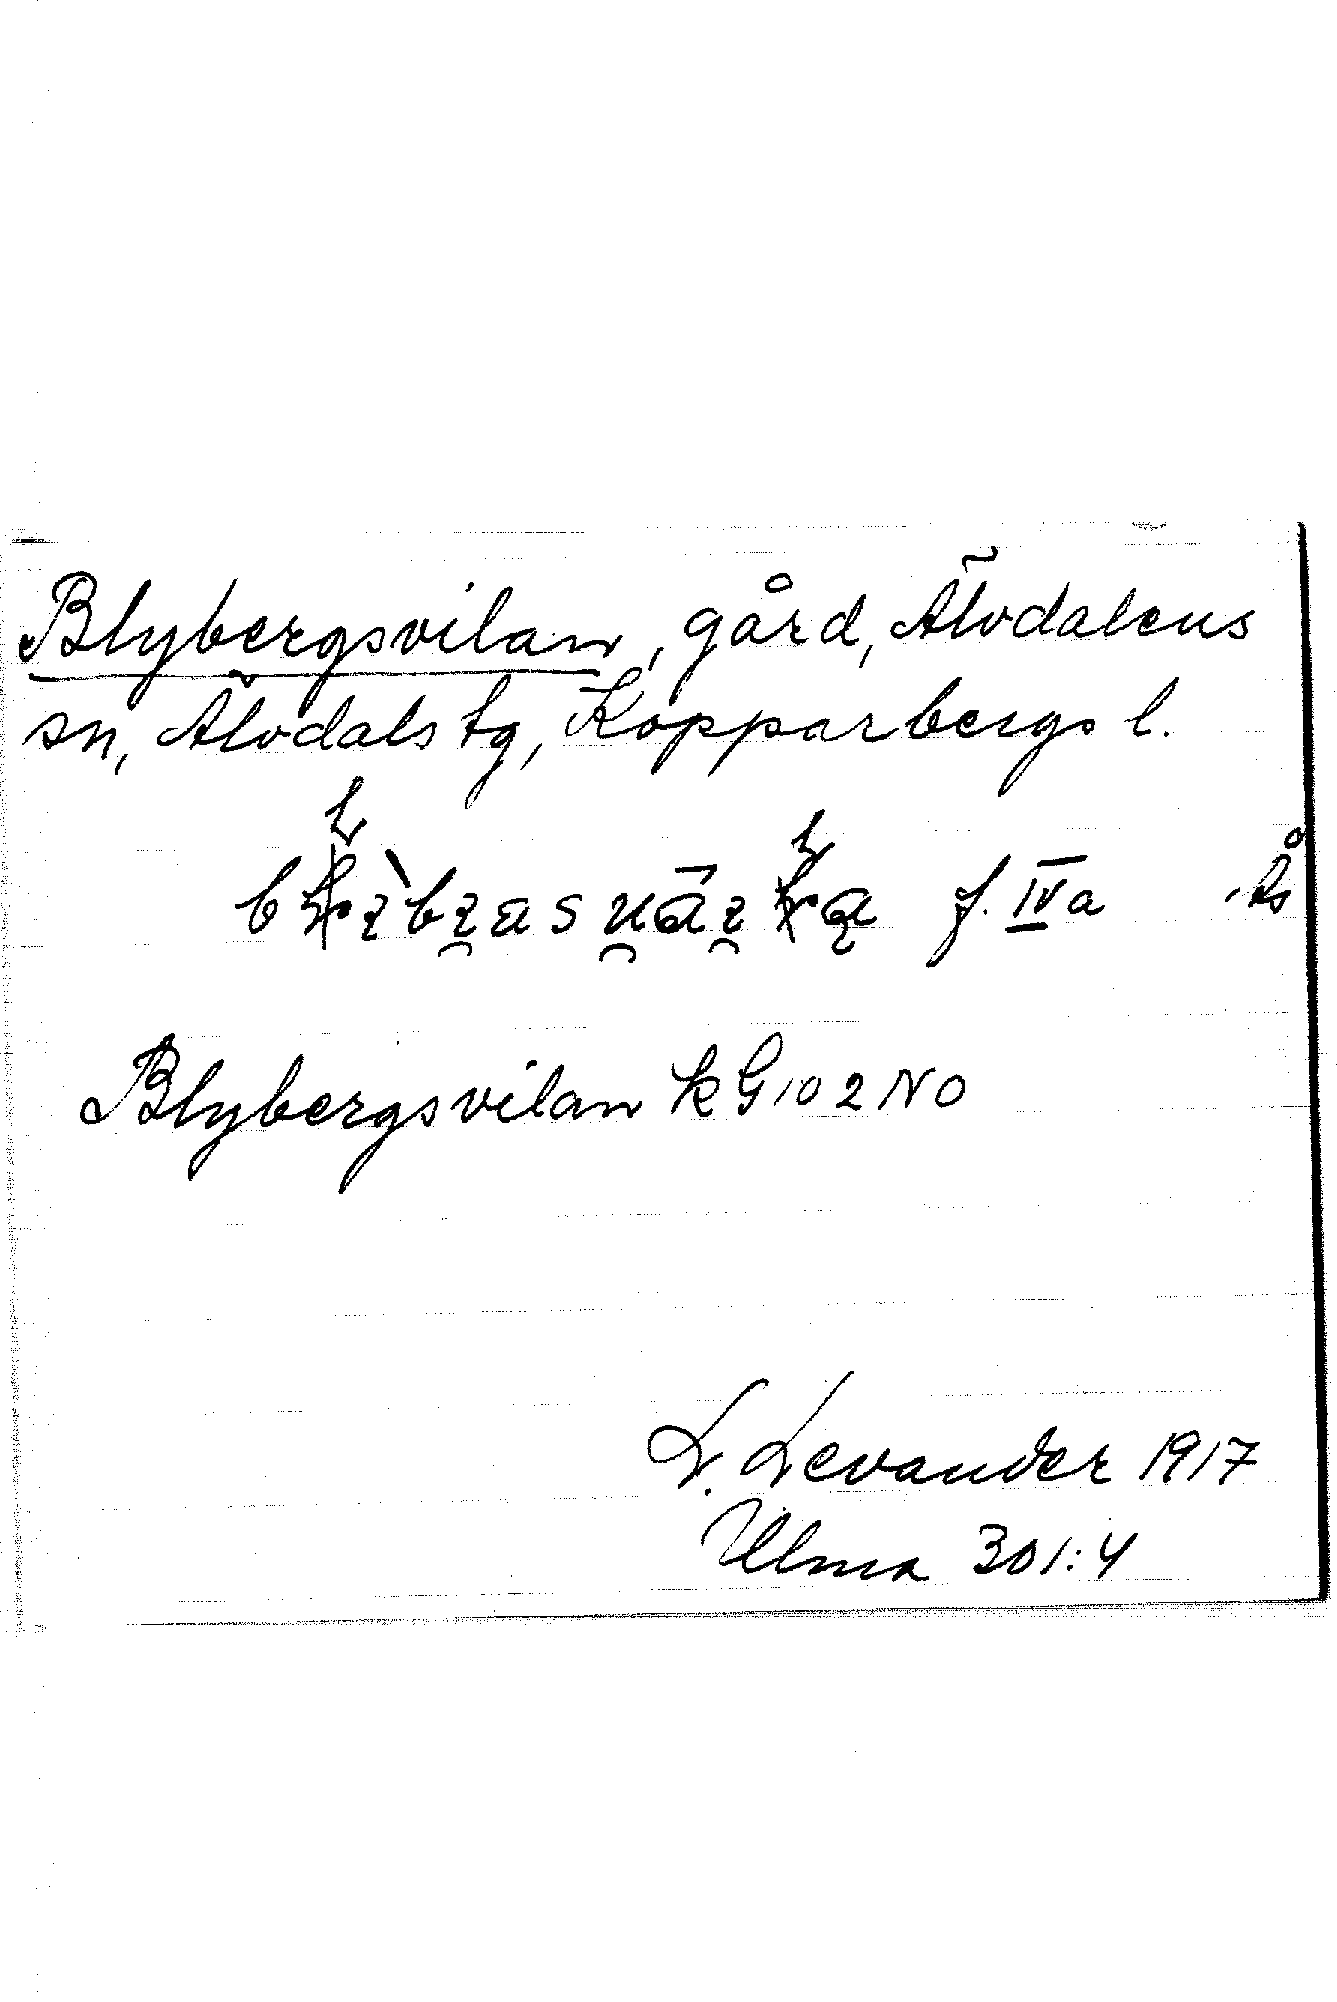 Blybergsvilan, gård, Älvdalens
sn, Älvdals tg, Kopparbergs l.
f. IVa Ås
Blybergsvilan k G 102 NO
L. Levander 1917
Ulma 301:4